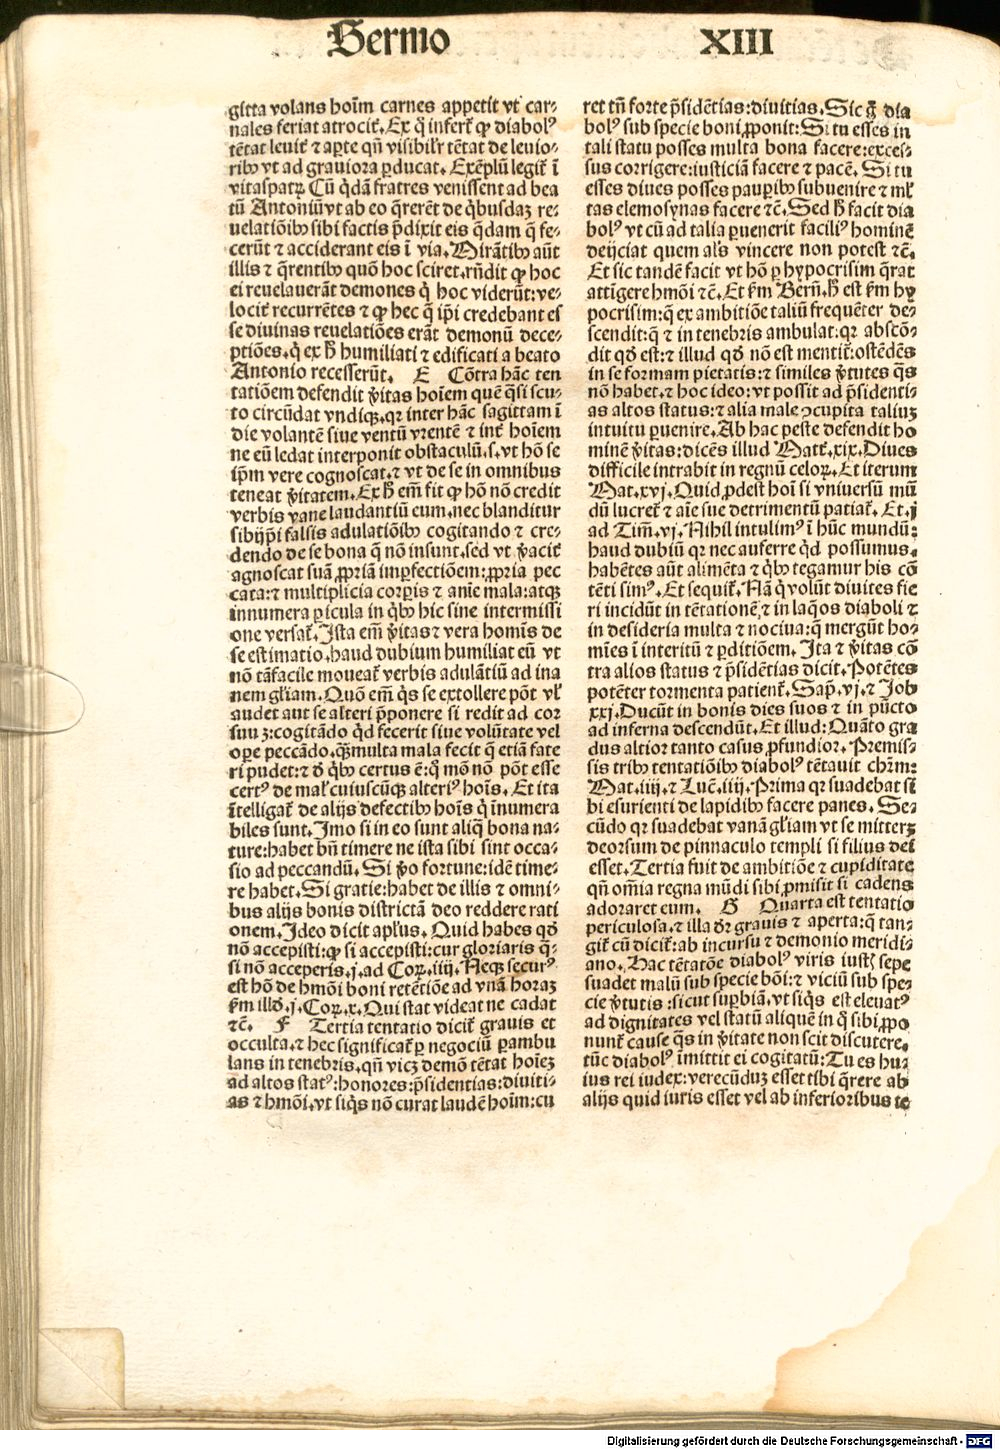 Sermo XIII
gitta volans hoīm carnes appetit vt car-
nales feriat atrociť. Ex q̇ inferť ꝙ diabolꝰ
tētat leuiť ⁊ aꝑte qñ visibilr̃ tētat de leuio-
ribꝰ vt ad grauiora ꝑducat. Exēplū legiť ī
vitaspatꝝ Cū q̇dā fratres venissent ad bea
tū Antoniū vt ab eo q̄rerēt de q̇busdaꝫ re-
uelatiōibꝰ sibi factis p̄dixit eis q̇dam q̄ fe-
cerūt ⁊ acciderant eis ī via. Mirātibꝰ aūt
illis ⁊ q̄rentibꝰ quō hoc sciret. rñdit ꝙ hoc
ei reuelauerāt demones q̇ hoc viderūt: ve-
lociť recurrētes ⁊ ꝙ hec q̄ ip̄i credebant es
se diuinas reuelatiōes erāt demonū dece-
ptiōes. q̇ ex ħ humiliati ⁊ edificati a beato
Antonio recesserūt. E Cōtra hāc ten
tatiōem defendit v̄itas hoīem quē q̄si scu-
to circūdat vndiqꝫ. qꝛ inter hāc sagittam ī
die volantē siue ventū vrentē ⁊ inť hoīem
ne eū ledat interponit obstaculū. s. vt hō se
ip̄m vere cognoscat. ⁊ vt de se in omnibus
teneat v̄itatem. Ex ħ em̄ fit ꝙ hō nō credit
verbis vane laudantiū eum. nec blanditur
sibijp̄i falsis adulatiōibꝰ cogitando ⁊ cre-
dendo de se bona q̄ nō insunt. sed vt v̄aciť
agnoscat suā ꝓpriā imꝑfectiōem: ꝓpria pec
cata: ⁊ multiplicia corꝑis ⁊ anie mala: atqꝫ
innumera ꝑicula in q̇bꝰ hic sine intermissi
one versať. Ista em̄ v̄itas ⁊ vera homīs de
se estimatio. haud dubium humiliat eū vt
nō tā facile moueať verbis adulātiū ad ina
nem gl̄iam. Quō em̄ q̇s se extollere pōt vl̓
audet aut se alteri p̄ponere si redit ad cor
suuꝫ: cogitādo q̇d fecerit siue volūtate vel
oꝑe peccādo. q̄ꝫ multa mala fecit q̄ etiā fate
ri pudet: ⁊ ď q̇bꝰ certus ē: q̇ mō nō pōt esse
certꝰ de mal̓ cuiuscūqꝫ alteriꝰ hoīs. Et ita
ītelligať de alijs defectibꝰ hoīs q̇ īnumera
biles sunt. Imo si in eo sunt aliq̄ bona na-
ture: habet bn̄ timere ne ista sibi sint occa-
sio ad peccandū. Si v̄o fortune: idē time-
re habet. Si gratie: habet de illis ⁊ omni-
bus alijs bonis districtā deo reddere rati
onem. Ideo dicit apl̓us. Quid habes qď
nō accepisti: ꝙ si accepisti: cur gloriaris q̄-
si nō acceperis. j. ad Coꝝ. iiij. Neqꝫ securꝰ
est hō de hmōi boni retētiōe ad vnā horaꝫ
ẜm illď. j. Coꝝ. x. Qui stat videat ne cadat
⁊c̄. F Tertia tentatio diciť grauis et
occulta. ⁊ hec significať ꝑ negociū ꝑambu
lans in tenebris. qñ vicꝫ demō tētat hoīeꝫ
ad altos statꝰ: honores: p̄sidentias: diuiti-
as ⁊ hmōi. vt siq̇s nō curat laudē hoīm: cu
ret tn̄ forte p̄sidētias: diuitias. Sic g̊ dia
bolꝰ sub specie boni ꝓponit: Si tu esses in
tali statu posses multa bona facere: exces-
sus corrigere: iusticiā facere ⁊ pacē. Si tu
esses diues posses pauꝑibꝰ subuenire ⁊ ml̓
tas elemosynas facere ⁊c̄. Sed ħ facit dia
bolꝰ vt cū ad talia ꝑuenerit faciliꝰ hominē
deijciat quem al̓s vincere non potest ⁊c̄.
Et sic tandē facit vt hō ꝑ hypocrisim q̄rat
attīgere hmōi ⁊c̄. Et ẜm Bern̄. ħ est ẜm hy
pocrisim: q̄ ex ambitiōe taliū frequēter de-
scendit: q̄ ⁊ in tenebris ambulat: qꝛ abscō-
dit qď est: ⁊ illud qď nō est mentiť: ostēdēs
in se formam pietatis: ⁊ similes v̄tutes q̄s
nō habet. ⁊ hoc ideo: vt possit ad p̄sidenti-
as altos status: ⁊ alia male ꝯcupita taliuꝫ
intuitu ꝑuenire. Ab hac peste defendit ho
minē v̄itas: dicēs illud Matť. xix. Diues
difficile intrabit in regnū celoꝝ. Et iterum
Mat. xvj. Quid ꝓdest hoī si vniuersū mū
dū lucreť ⁊ aīe sue detrimentū patiať. Et. j
ad Tim̄. vj. Nihil intulimꝰ ī hūc mundū:
haud dubiū qꝛ nec auferre q̇d possumus.
habētes aūt alimēta ⁊ q̇bꝰ tegamur his cō
tēti simꝰ. Et sequiť. Nā q̇ volūt diuites fie
ri incidūt in tētationē ⁊ in laq̇os diaboli ⁊
in desideria multa ⁊ nociua: q̄ mergūt ho-
mīes ī interitū ⁊ ꝑditiōem. Ita ⁊ v̄itas cō
tra alios status ⁊ p̄sidētias dicit. Potētes
potēter tormenta patienť. Sap̄. vj. ⁊ Job
xxj. Ducūt in bonis dies suos ⁊ in pūcto
ad inferna descendūt. Et illud: Quāto gra
dus altior tanto casus ꝓfundior. Premis-
sis tribꝰ tentatiōibꝰ diabolꝰ tētauit chr̄m:
Mat. iiij. ⁊ Luc̄. iiij. Prima qꝛ suadebat si
bi esurienti de lapidibꝰ facere panes. Se-
cūdo qꝛ suadebat vanā gl̄iam vt se mitterꝫ
deorsum de pinnaculo templi si filius dei
esset. Tertia fuit de ambitiōe ⁊ cupiditate
qñ om̄ia regna mūdi sibi ꝓmisit si cadens
adoraret eum. G Quarta est tentatio
periculosa. ⁊ illa dr̄ grauis ⁊ aperta: q̄ tan-
giť cū diciť: ab incursu ⁊ demonio meridi-
ano. Hac tētatōe diabolꝰ viris iustꝭ sepe
suadet malū sub specie bōi: ⁊ viciū sub spe-
cie v̄tutis: sicut suꝑbiā. vt siq̇s est eleuatꝰ
ad dignitates vel statū aliquē in q̇ sibi ꝓpo
nunť cause q̄s in v̄itate non scit discutere.
tūc diabolꝰ īmittit ei cogitatū: Tu es huꝰ
ius rei iudex: verecūduꝫ esset tibi q̄rere ab
alijs quid iuris esset vel ab inferioribus te
Digitalisierung gefördert durch die Deutsche Forschungsgemeinschaft - DFG